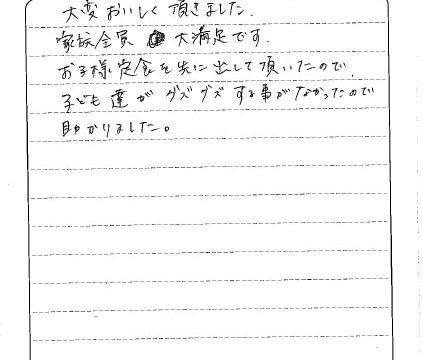 大変おいしく頂きました.
家族全員 大満足です.
お子様定食を先に出して頂いたので.
子ども達がグズグズする事がなかったので
助かりました。